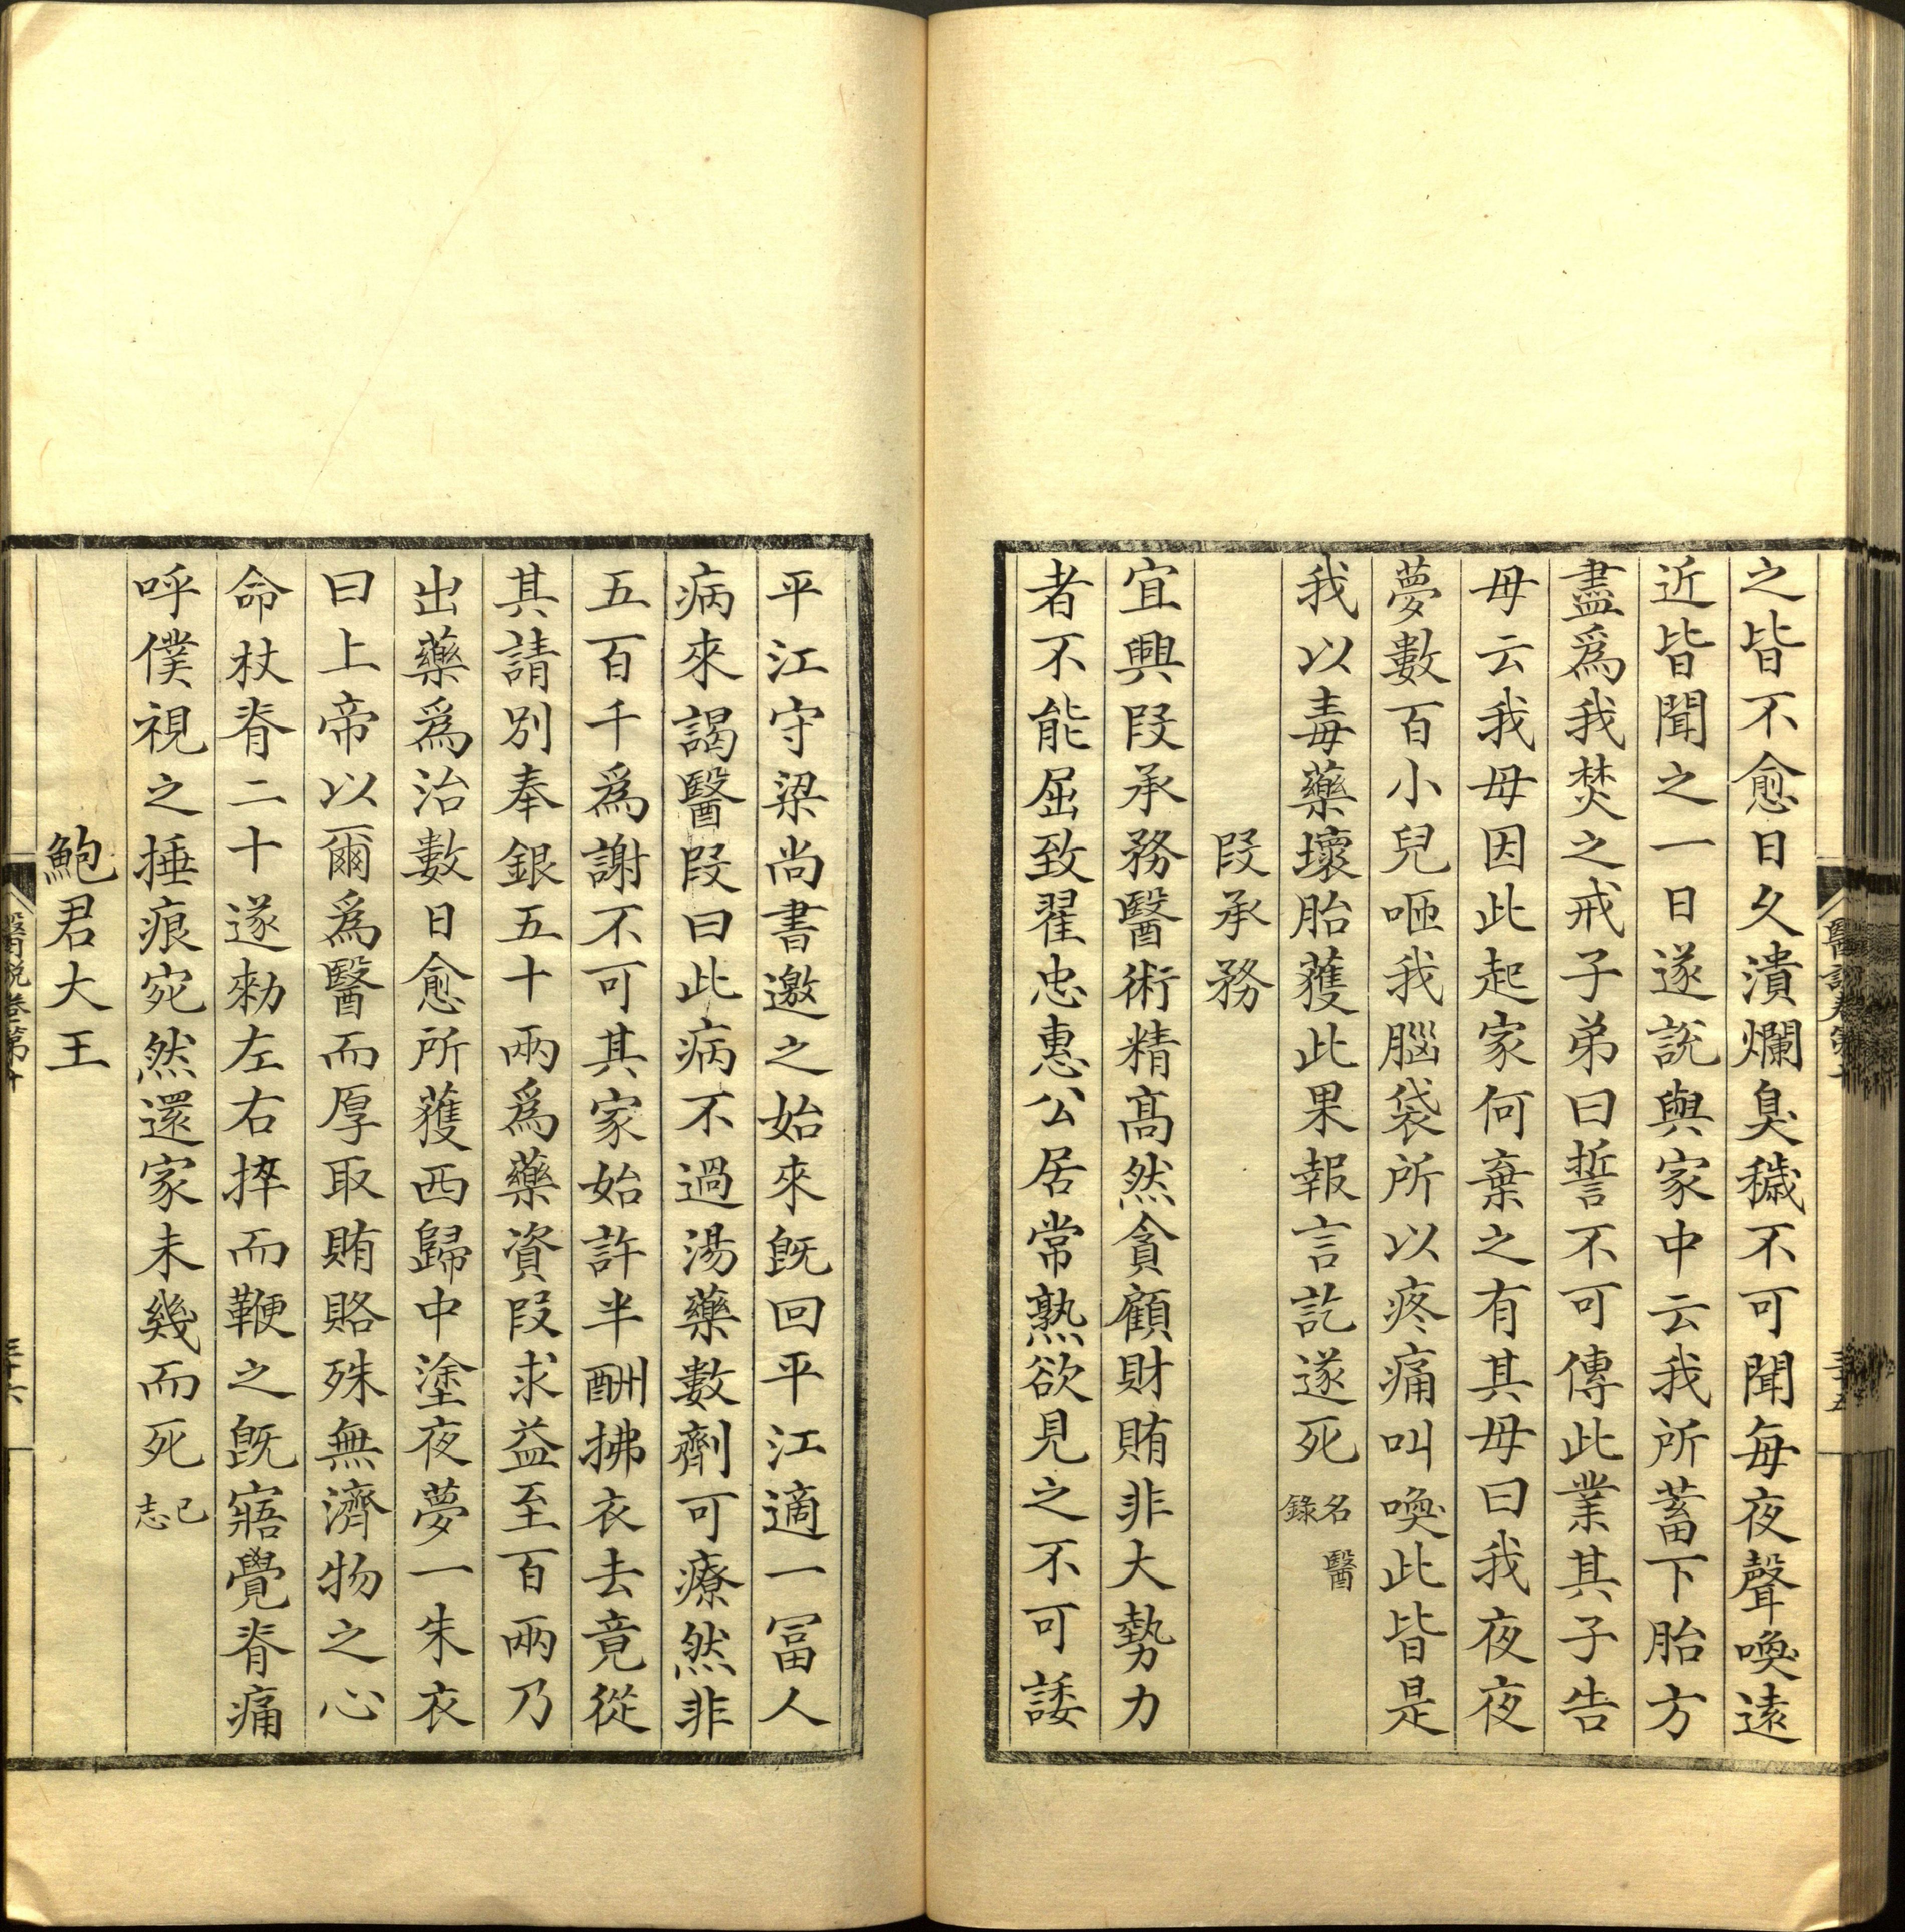 之皆不愈日久潰爛臭穢不可聞每夜聲喚遠
近皆聞之一日遂説與家中云我所蓄下胎方
盡爲我焚之戒子弟曰誓不可傳此業其子告
母云我母因此起家何棄之有其母曰我夜夜
夢數百小兒咂我腦袋所以疼痛叫喚此皆是
我以毒藥壞胎獲此果報言訖遂死名醫錄
段承務
宜興段承務醫術精高然貪顧財賄非大勢力
者不能屈致翟忠惠公居常熟欲見之不可諉
平江守梁尚書邀之始來既回平江適一冨人
病來謁醫段曰此病不過湯藥數劑可療然非
五百千爲謝不可其家始許半酬拂衣去竟從
其請別奉銀五十兩爲藥資段求益至百兩乃
出藥爲治數日愈所獲西歸中塗夜夢一朱衣
曰上帝以爾爲醫而厚取賄賂殊無濟物之心
命杖脊二十遂勑左右捽而鞭之既寤覺脊痛
呼僕視之捶痕宛然還家未幾而死已志
鮑君大王
醫説卷第十
三十六